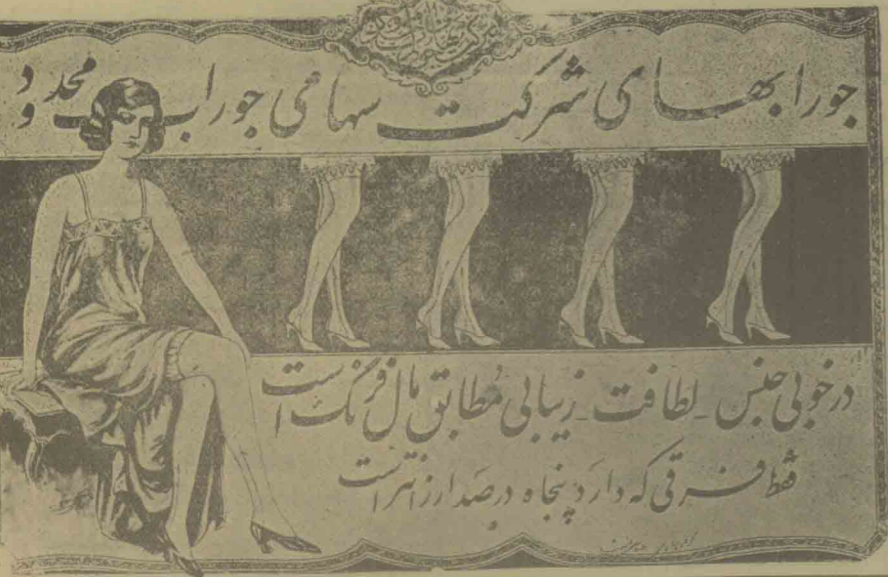 جورابهای شرکت سهامی جوراب محدود
در خوبی جنس - لطافت - زیبائی مطابق مال فرنگ است
فقط فرقی که دارد پنجاه درصد ارزانتر است